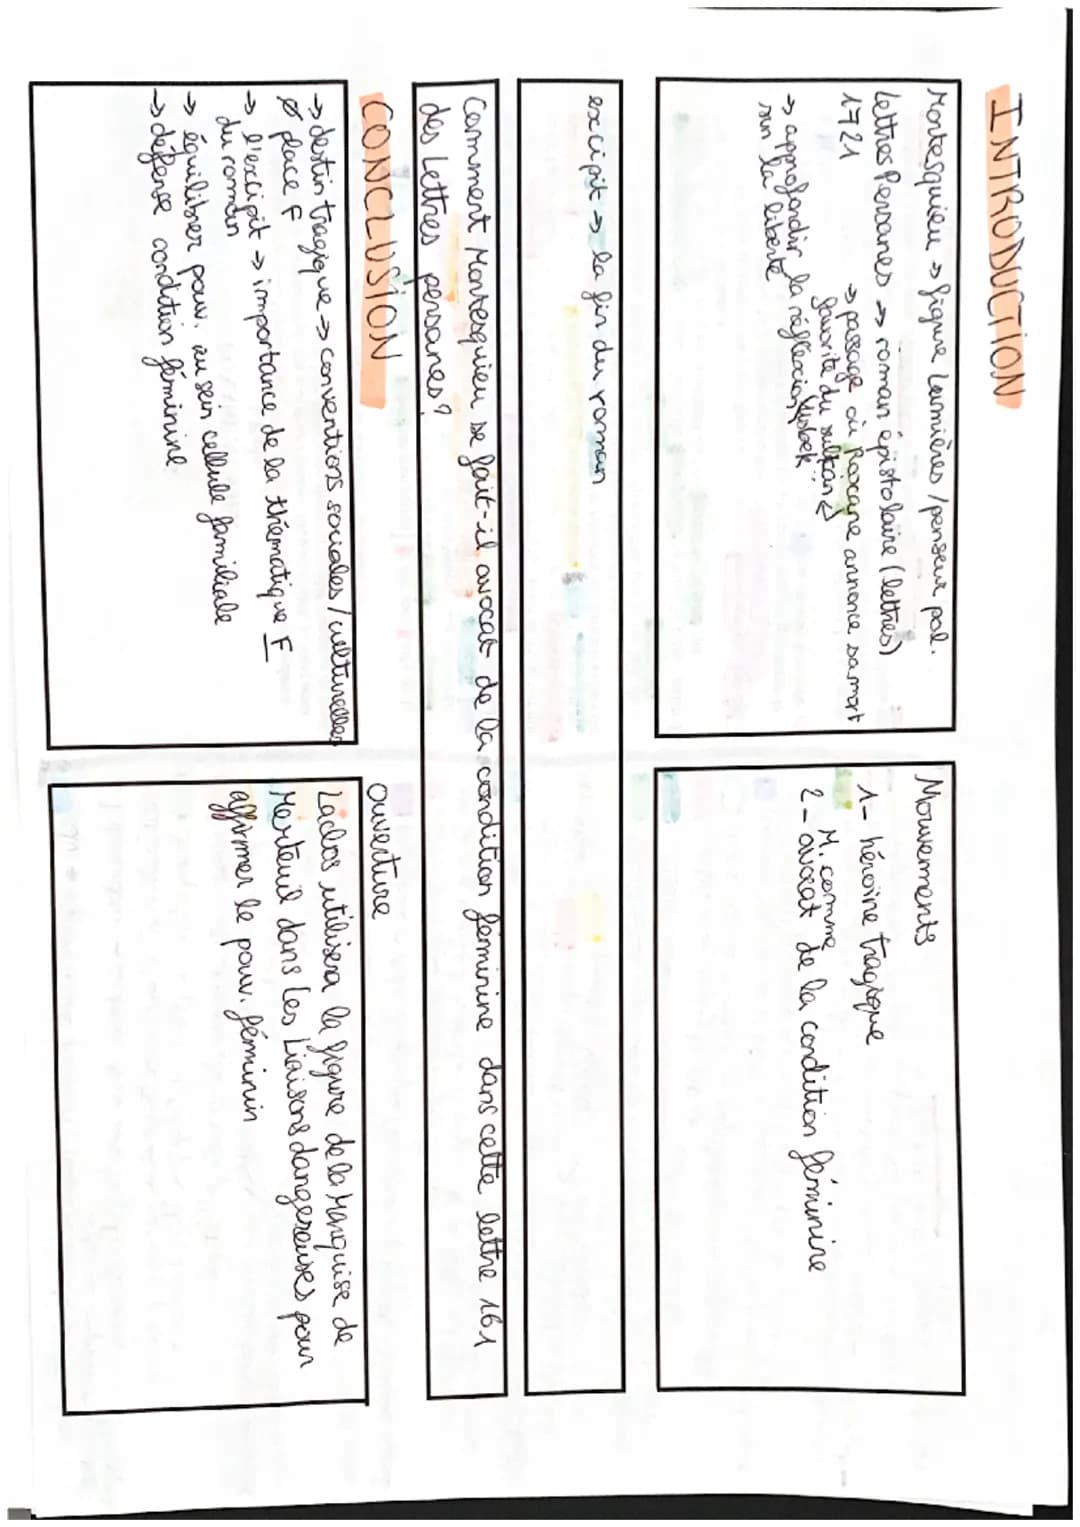 INTRODUCTION
Montesquieu → figure Lumières / penseur pol.
Lettres Persanes → roman épistolaire (lettres)
1721
→ passage où Roxane annonce sa mort
favorite du sultan
Usbek
→ approfondir la réflexion
sur la liberté
Mouvements
1- héroïne tragique
M. comme
2- avocat de la condition féminine
excipit → la fin du roman
Comment Montesquieu se fait-il avocat de la condition féminine dans cette lettre 161
des Lettres persanes?
CONCLUSION
→ destin tragique → conventions sociales / culturelles
Ø place F
→ l'excipit → importance de la thématique F
du roman
→ équilibrer pouv. au sein cellule familiale
→ défense condition féminine
Ouverture
Laclos utilisera la figure de la Marquise de
Merteuil dans Les Liaisons dangereuses pour
affirmer le pouv. féminin